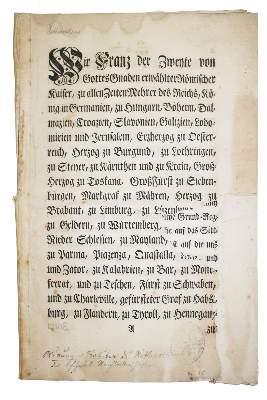 Wir Franz der Zweyte von
Gottes Gnaden erwählter Römischer
Kaiser, zu allen Zeiten Mehrer des Reichs, Kö-
nig in Germanien, zu Hungarn, Boheim, Dal-
mazien, Croazien, Slavonien, Galizien, Lodo-
mirien und Jerusalem, Erzherzog zu Oester-
reich, Herzog zu Burgund, zu Lothringen,
zu Steyer, zu Kärnthen und zu Krain, Groß-
Herzog zu Toskana, GroßFürst zu Sieben-
bürgen, Markgraf zu Mähren, Herzog zu
Brabant, zu Limburg, zu
zu Geldern, zu Würtemberg,
Nieder Schlesien, zu Mayland,
zu Parma, Piazenza, Quastalla,
und Zator, zu Kalabrien, zu Bar, zu Mont-
ferrat, und zu Teschen, Fürst zu Schwaben,
und zu Charleville, gefürsteter Graf zu Habs-
burg, zu Flandern, zu Tyroll, zu Hennegau,
A zu